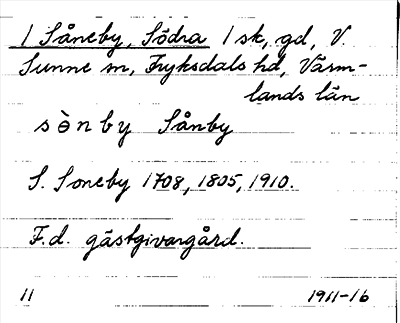 1 Såneby, Södra 1 sk, gd, V.
Sunne sn, Fryksdals hd, Värm-
lands län
sǝ̀nby Sånby
S. Soneby 1708, 1805, 1910.
F.d. gästgivargård.
11 1911-16